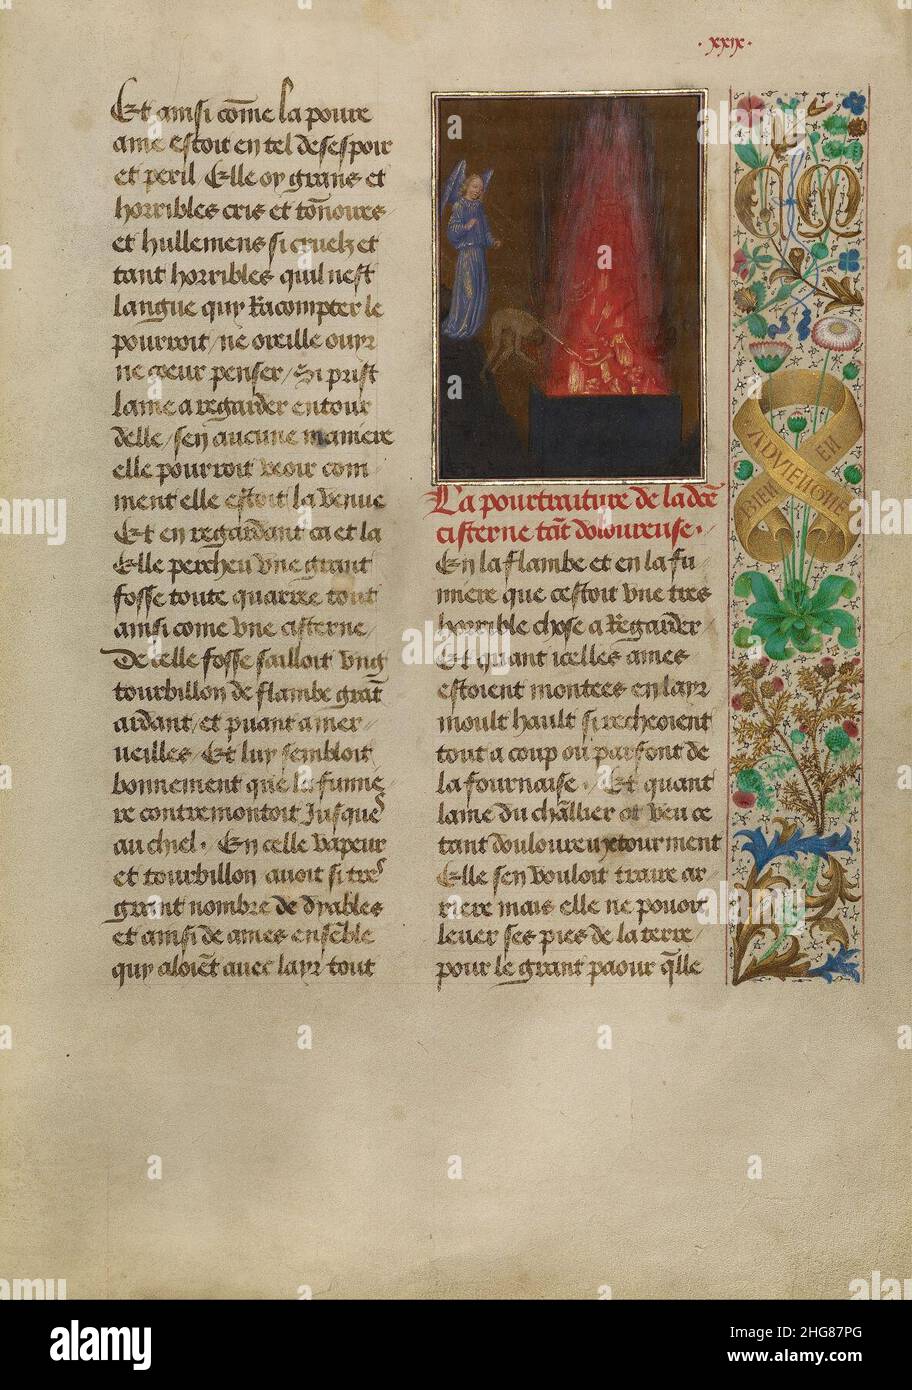 · xxix ·
Et ainsi cōme la poure
ame estoit en tel desespoir
et peril Elle oy grans et
horribles cris et tōnoires
et hullemens si cruelz et
tant horribles quil nest
langue quy Racompter le
pourroit / ne oreille ouyr
ne coeur penser / Si prist
lame a regarder entour
delle / sen aucune maniere
elle pourroit veoir com
ment elle estoit la venue
Et en regardant ca et la
Elle percheu vne grant
fosse toute quarree tout
ainsi come vne cisterne /
De celle fosse sailloit vng
tourbillon de flambe grāt
ardant / et puant a mer /
ueilles / Et luy sembloit
bonnement que la fumee /
re contremontoit Jusques
au chiel · En celle vapeur
et tourbillon auoit si tres
grant nombre de dyables
et ainsi de ames ensēble
quy aloiēt auec layr tout
La pourtraiture de la dce
cisterne tāt doloureuse ·
En la flambe et en la fu
miere que cestoit vne tres
horrible chose a Regarder
Et quant icelles ames
estoient montees en layr
moult hault si recheoient
tout a coup ou parfont de
la fournaise · Et quant
lame du chllier ot veu ce
tant douloureux tourment
Elle sen vouloit traire ar
riere mais elle ne pouoit
leuer ses pies de la terre /
pour le grant paour qlle
BIEN
ADVIENGNE
alamy
Image ID: 2HG87PG
www.alamy.com